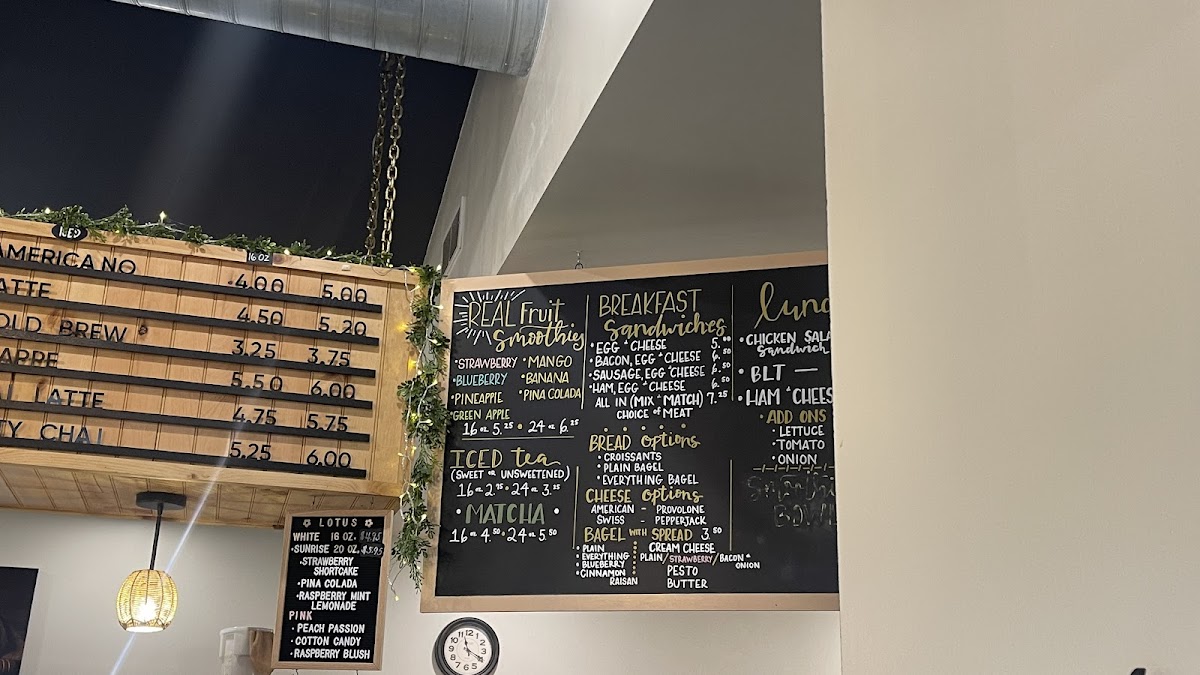 ICED
16 OZ
AMERICANO 4.00 5.00
ATTE 4.50 5.20
OLD BREW 3.25 3.75
APPE 5.50 6.00
AI LATTE 4.75 5.75
TY CHAI 5.25 6.00
LOTUS
WHITE 16 OZ. $4.95
•SUNRISE 20 OZ. $5.95
•STRAWBERRY
SHORTCAKE
•PINA COLADA
•RASPBERRY MINT
LEMONADE
PINK
•PEACH PASSION
•COTTON CANDY
•RASPBERRY BLUSH
REAL Fruit
Smoothies
•STRAWBERRY •MANGO
•BLUEBERRY •BANANA
•PINEAPPLE •PINA COLADA
•GREEN APPLE
16 oz 5.25 • 24 oz 6.25
ICED tea
(SWEET OR UNSWEETENED)
16 oz 2.75 • 24 oz 3.25
•MATCHA•
16 oz 4.50 • 24 oz 5.50
BREAKFAST
Sandwiches
•EGG & CHEESE 5.00
•BACON, EGG & CHEESE 6.50
•SAUSAGE, EGG & CHEESE 6.50
•HAM, EGG & CHEESE 6.50
ALL IN (MIX & MATCH) 7.25
CHOICE OF MEAT
BREAD options
•CROISSANTS
•PLAIN BAGEL
•EVERYTHING BAGEL
CHEESE options
AMERICAN - PROVOLONE
SWISS - PEPPERJACK
BAGEL WITH SPREAD 3.50
•PLAIN
•EVERYTHING
•BLUEBERRY
•CINNAMON
RAISAN
CREAM CHEESE
PLAIN/STRAWBERRY/BACON &
ONION
PESTO
BUTTER
lunc
•CHICKEN SALA
Sandwich
•BLT —
•HAM & CHEES
•ADD ONS
•LETTUCE
•TOMATO
•ONION
BOWL
12 1 2 3 4 5 6 7 8 9 10 11